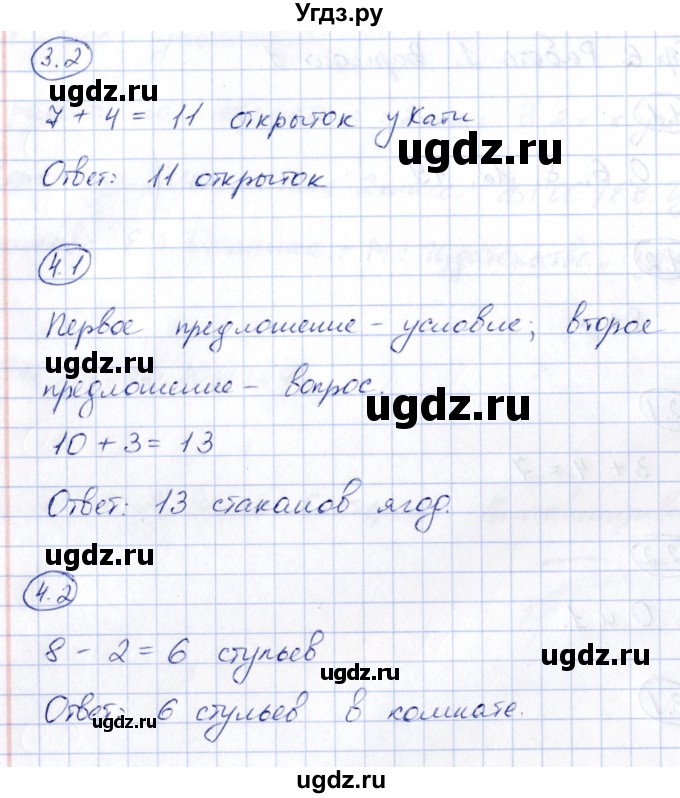 Угдз.ру
3.2
ugdz.ru
7 + 4 = 11 открыток у Кати
ugdz.ru
Ответ: 11 открыток
4.1
Первое предложение - условие; второе
ugdz.ru
предложение - вопрос.
ugdz.ru
10 + 3 = 13
Ответ: 13 стаканов ягод.
ugdz.ru
4.2
8 - 2 = 6 стульев
ugdz.ru
Ответ: 6 стульев в комнате.
ugdz.ru
ugdz.ru